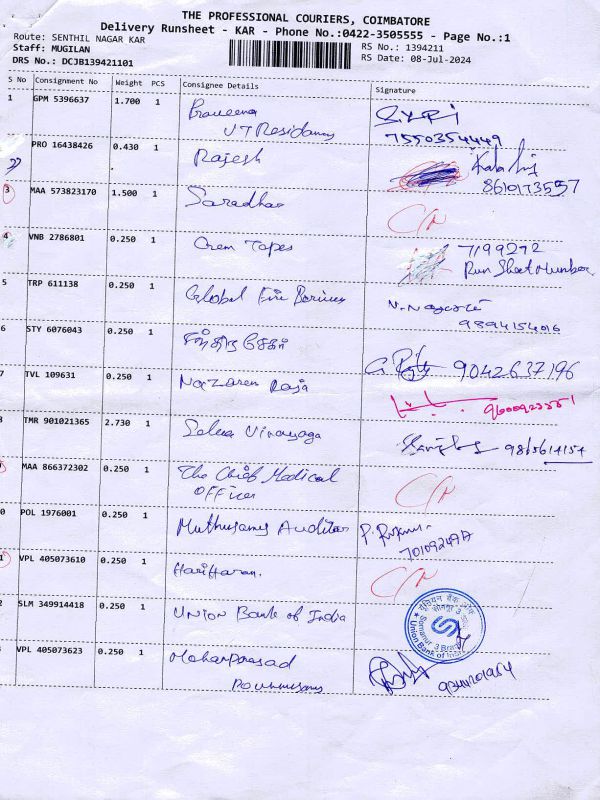 THE PROFESSIONAL COURIERS, COIMBATORE
Delivery Runsheet - KAR - Phone No.:0422-3505555 - Page No.:1
Route: SENTHIL NAGAR KAR
RS No.: 1394211
Staff: MUGILAN
RS Date: 08-Jul-2024
DRS No.: DCJB139421101
S No Consignment No Weight PCS Consignee Details Signature
1 GPM 5396637 1.700 1 Praveena
UT Residency
7550354449
PRO 16438426 0.430 1 Rajesh
8610173557
3 MAA 573823170 1.500 1 Saradha C/N
4 VNB 2786801 0.250 1 Chem Tapes 7199292
Run Sheet Number
5 TRP 611138 0.250 1 Global
9894154016
6 STY 6076043 0.250 1
9042637196
7 TVL 109631 0.250 1 Nazaren Raja
TMR 901021365 2.730 1 Selva Vinayaga
9865614154
MAA 866372302 0.250 1 The Chief Medical
Officer C/N
0 POL 1976001 0.250 1 Muthusamy Auditor
1 VPL 405073610 0.250 1 Hariharan. C/N
2 SLM 349914418 0.250 1 Union Bank of India
Union Bank of India
VPL 405073623 0.250 1 Moharprasad